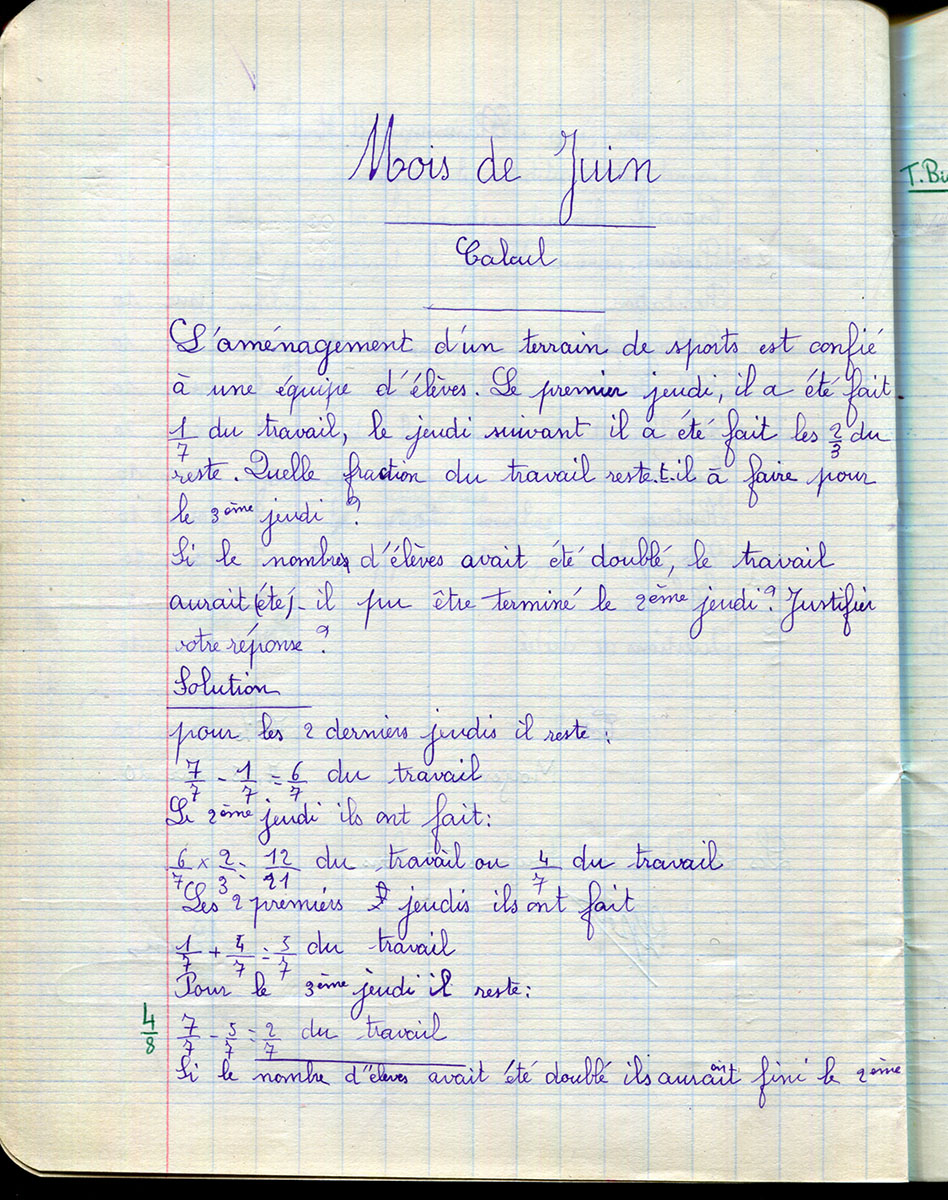 Mois de Juin
Calcul
L'aménagement d'un terrain de sports est confié
à une équipe d'élèves. Le premier jeudi, il a été fait
1/7 du travail, le jeudi suivant il a été fait les 2/3 du
reste. Quelle fraction du travail reste.t.il à faire pour
le 3ème jeudi ?
Si le nombre d'élèves avait été doublé, le travail
aurait (été) - il pu être terminé le 2ème jeudi ? Justifier
votre réponse ?
Solution
pour les 2 derniers jeudis il reste :
7/7 - 1/7 = 6/7 du travail
Le 2ème jeudi ils ont fait :
6/7 x 2/3 = 12/21 du travail ou 4/7 du travail
Les 2 premiers jeudis ils ont fait
1/7 + 4/7 = 5/7 du travail
Pour le 3ème jeudi il reste :
4/8
7/7 - 5/7 = 2/7 du travail
Si le nombre d'élèves avait été doublé ils auraient fini le 2ème